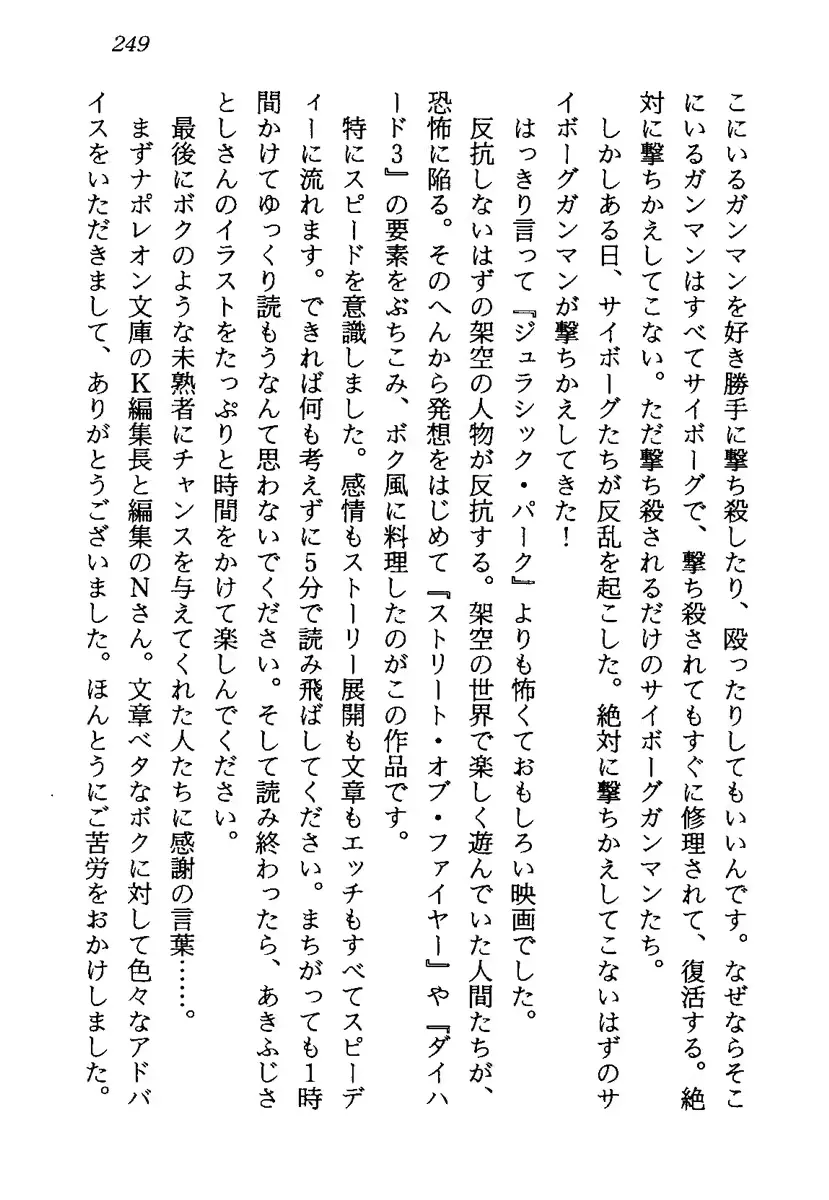 249
こにいるガンマンを好き勝手に撃ち殺したり、殴ったりしてもいいんです。なぜならそこ
にいるガンマンはすべてサイボーグで、撃ち殺されてもすぐに修理されて、復活する。絶
対に撃ちかえしてこない。ただ撃ち殺されるだけのサイボーグガンマンたち。
しかしある日、サイボーグたちが反乱を起こした。絶対に撃ちかえしてこないはずのサ
イボーグガンマンが撃ちかえしてきた！
はっきり言って『ジュラシック・パーク』よりも怖くておもしろい映画でした。
反抗しないはずの架空の人物が反抗する。架空の世界で楽しく遊んでいた人間たちが、
恐怖に陥る。そのへんから発想をはじめて『ストリート・オブ・ファイヤー』や『ダイハ
ード3』の要素をぶちこみ、ボク風に料理したのがこの作品です。
特にスピードを意識しました。感情もストーリー展開も文章もエッチもすべてスピーデ
ィーに流れます。できれば何も考えずに5分で読み飛ばしてください。まちがっても1時
間かけてゆっくり読もうなんて思わないでください。そして読み終わったら、あきふじさ
としさんのイラストをたっぷりと時間をかけて楽しんでください。
最後にボクのような未熟者にチャンスを与えてくれた人たちに感謝の言葉……。
まずナポレオン文庫のK編集長と編集のNさん。文章ベタなボクに対して色々なアドバ
イスをいただきまして、ありがとうございました。ほんとうにご苦労をおかけしました。